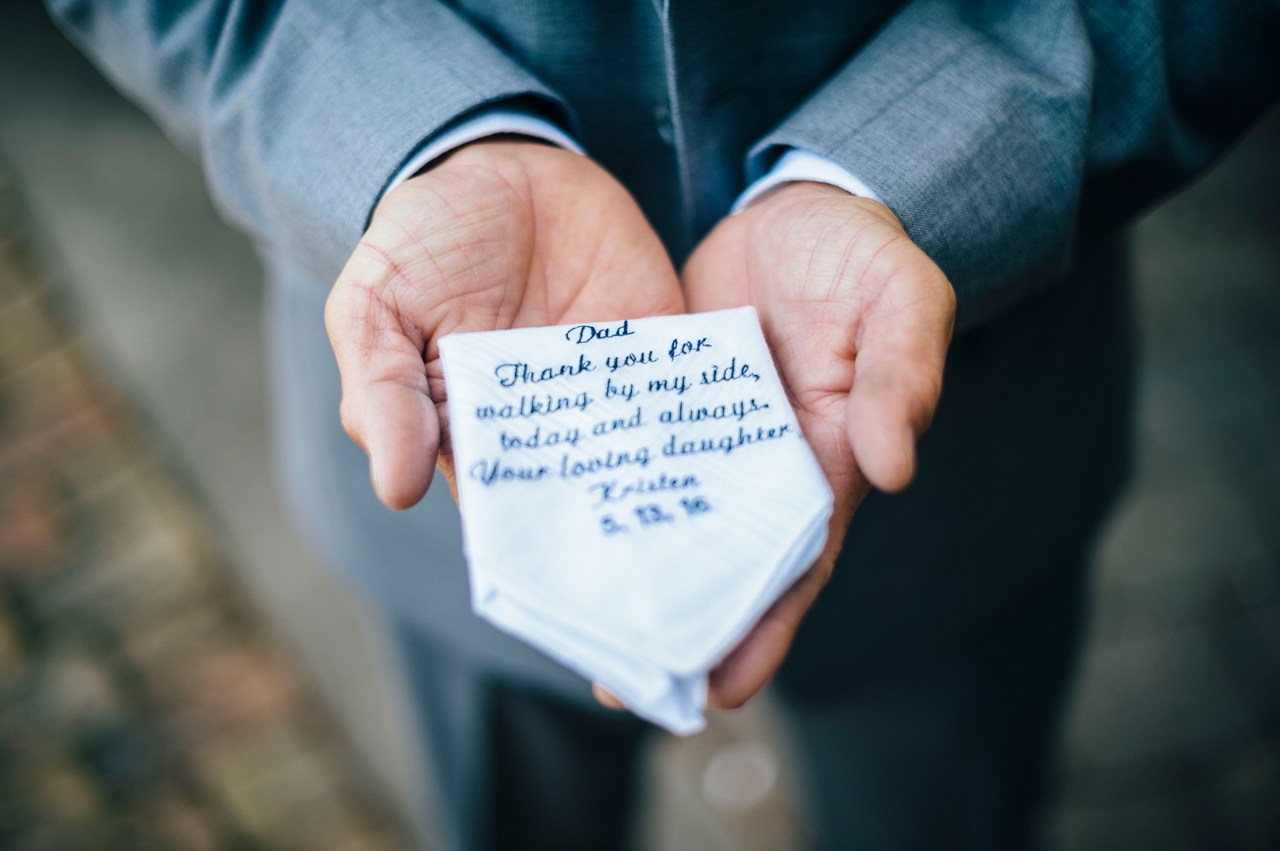 Dad
Thank you for
walking by my side,
today and always.
Your loving daughter,
Kristen
5. 13. 16